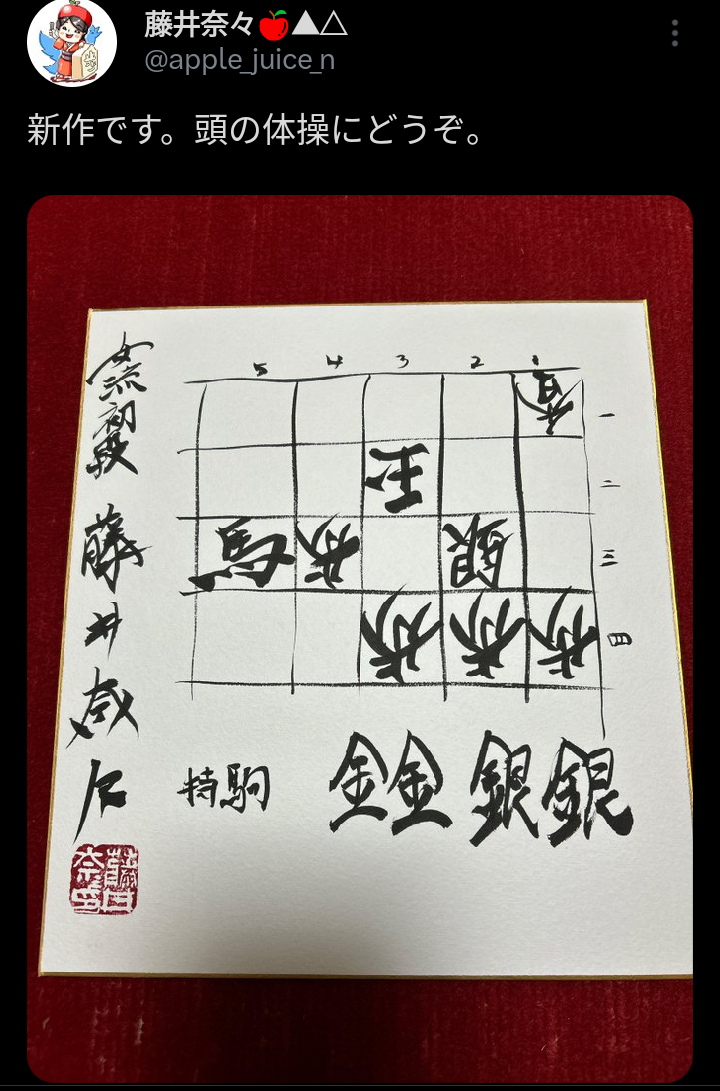 藤井奈々🍎▲△
@apple_juice_n
新作です。頭の体操にどうぞ。
5 4 3 2 1
香 一
玉 二
馬 歩 銀 三
歩 歩 歩 四
持駒 金金銀銀
女流初段 藤井奈々